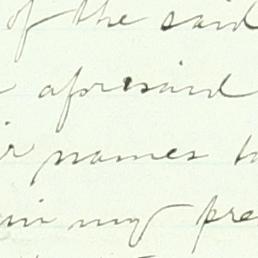 of the said
aforesaid
names to
in my pre